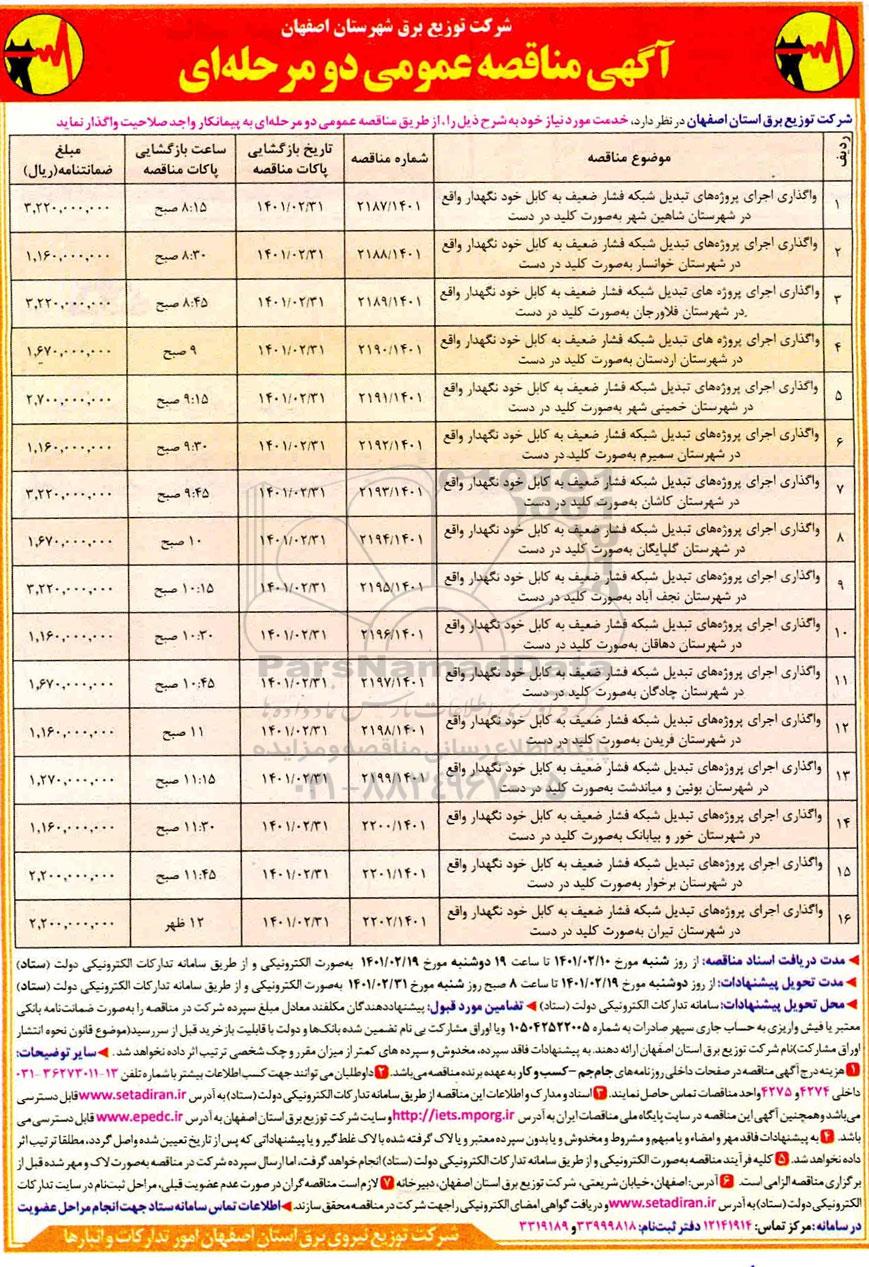 شرکت توزیع برق شهرستان اصفهان
آگهی مناقصه عمومی دو مرحله‌ای
شرکت توزیع برق استان اصفهان در نظر دارد، خدمت مورد نیاز خود به شرح ذیل را، از طریق مناقصه عمومی دو مرحله‌ای به پیمانکار واجد صلاحیت واگذار نماید
ردیف موضوع مناقصه شماره مناقصه تاریخ بازگشایی پاکات مناقصه ساعت بازگشایی پاکات مناقصه مبلغ ضمانتنامه(ریال)
۱ واگذاری اجرای پروژه‌های تبدیل شبکه فشار ضعیف به کابل خود نگهدار واقع در شهرستان شاهین شهر به‌صورت کلید در دست ۲۱۸۷/۱۴۰۱ ۱۴۰۱/۰۲/۳۱ ۸:۱۵ صبح ۳,۲۲۰,۰۰۰,۰۰۰
۲ واگذاری اجرای پروژه‌های تبدیل شبکه فشار ضعیف به کابل خود نگهدار واقع در شهرستان خوانسار به‌صورت کلید در دست ۲۱۸۸/۱۴۰۱ ۱۴۰۱/۰۲/۳۱ ۸:۳۰ صبح ۱,۱۶۰,۰۰۰,۰۰۰
۳ واگذاری اجرای پروژه های تبدیل شبکه فشار ضعیف به کابل خود نگهدار واقع در شهرستان فلاورجان به‌صورت کلید در دست ۲۱۸۹/۱۴۰۱ ۱۴۰۱/۰۲/۳۱ ۸:۴۵ صبح ۳,۲۲۰,۰۰۰,۰۰۰
۴ واگذاری اجرای پروژه های تبدیل شبکه فشار ضعیف به کابل خود نگهدار واقع در شهرستان اردستان به‌صورت کلید در دست ۲۱۹۰/۱۴۰۱ ۱۴۰۱/۰۲/۳۱ ۹ صبح ۱,۶۷۰,۰۰۰,۰۰۰
۵ واگذاری اجرای پروژه‌های تبدیل شبکه فشار ضعیف به کابل خود نگهدار واقع در شهرستان خمینی شهر به‌صورت کلید در دست ۲۱۹۱/۱۴۰۱ ۱۴۰۱/۰۲/۳۱ ۹:۱۵ صبح ۲,۷۰۰,۰۰۰,۰۰۰
۶ واگذاری اجرای پروژه‌های تبدیل شبکه فشار ضعیف به کابل خود نگهدار واقع در شهرستان سمیرم به‌صورت کلید در دست ۲۱۹۲/۱۴۰۱ ۱۴۰۱/۰۲/۳۱ ۹:۳۰ صبح ۱,۱۶۰,۰۰۰,۰۰۰
۷ واگذاری اجرای پروژه‌های تبدیل شبکه فشار ضعیف به کابل خود نگهدار واقع در شهرستان کاشان به‌صورت کلید در دست ۲۱۹۳/۱۴۰۱ ۱۴۰۱/۰۲/۳۱ ۹:۴۵ صبح ۳,۲۲۰,۰۰۰,۰۰۰
۸ واگذاری اجرای پروژه‌های تبدیل شبکه فشار ضعیف به کابل خود نگهدار واقع در شهرستان گلپایگان به‌صورت کلید در دست ۲۱۹۴/۱۴۰۱ ۱۴۰۱/۰۲/۳۱ ۱۰ صبح ۱,۶۷۰,۰۰۰,۰۰۰
۹ واگذاری اجرای پروژه‌های تبدیل شبکه فشار ضعیف به کابل خود نگهدار واقع در شهرستان نجف آباد به‌صورت کلید در دست ۲۱۹۵/۱۴۰۱ ۱۴۰۱/۰۲/۳۱ ۱۰:۱۵ صبح ۳,۲۲۰,۰۰۰,۰۰۰
۱۰ واگذاری اجرای پروژه‌های تبدیل شبکه فشار ضعیف به کابل خود نگهدار واقع در شهرستان دهاقان به‌صورت کلید در دست ۲۱۹۶/۱۴۰۱ ۱۴۰۱/۰۲/۳۱ ۱۰:۳۰ صبح ۱,۱۶۰,۰۰۰,۰۰۰
۱۱ واگذاری اجرای پروژه‌های تبدیل شبکه فشار ضعیف به کابل خود نگهدار واقع در شهرستان چادگان به‌صورت کلید در دست ۲۱۹۷/۱۴۰۱ ۱۴۰۱/۰۲/۳۱ ۱۰:۴۵ صبح ۱,۶۷۰,۰۰۰,۰۰۰
۱۲ واگذاری اجرای پروژه‌های تبدیل شبکه فشار ضعیف به کابل خود نگهدار واقع در شهرستان فریدن به‌صورت کلید در دست ۲۱۹۸/۱۴۰۱ ۱۴۰۱/۰۲/۳۱ ۱۱ صبح ۱,۱۶۰,۰۰۰,۰۰۰
۱۳ واگذاری اجرای پروژه‌های تبدیل شبکه فشار ضعیف به کابل خود نگهدار واقع در شهرستان بوئین و میاندشت به‌صورت کلید در دست ۲۱۹۹/۱۴۰۱ ۱۴۰۱/۰۲/۳۱ ۱۱:۱۵ صبح ۱,۲۷۰,۰۰۰,۰۰۰
۱۴ واگذاری اجرای پروژه‌های تبدیل شبکه فشار ضعیف به کابل خود نگهدار واقع در شهرستان خور و بیابانک به‌صورت کلید در دست ۲۲۰۰/۱۴۰۱ ۱۴۰۱/۰۲/۳۱ ۱۱:۳۰ صبح ۱,۱۶۰,۰۰۰,۰۰۰
۱۵ واگذاری اجرای پروژه‌های تبدیل شبکه فشار ضعیف به کابل خود نگهدار واقع در شهرستان برخوار به‌صورت کلید در دست ۲۲۰۱/۱۴۰۱ ۱۴۰۱/۰۲/۳۱ ۱۱:۴۵ صبح ۲,۲۰۰,۰۰۰,۰۰۰
۱۶ واگذاری اجرای پروژه‌های تبدیل شبکه فشار ضعیف به کابل خود نگهدار واقع در شهرستان تیران به‌صورت کلید در دست ۲۲۰۲/۱۴۰۱ ۱۴۰۱/۰۲/۳۱ ۱۲ ظهر ۲,۲۰۰,۰۰۰,۰۰۰
◄ مدت دریافت اسناد مناقصه: از روز شنبه مورخ ۱۴۰۱/۰۲/۱۰ تا ساعت ۱۹ دوشنبه مورخ ۱۴۰۱/۰۲/۱۹ به‌صورت الکترونیکی و از طریق سامانه تدارکات الکترونیکی دولت (ستاد)
◄ مدت تحویل پیشنهادات: از روز دوشنبه مورخ ۱۴۰۱/۰۲/۱۹ تا ساعت ۸ صبح روز شنبه مورخ ۱۴۰۱/۰۲/۳۱ به‌صورت الکترونیکی و از طریق سامانه تدارکات الکترونیکی دولت (ستاد)
◄ محل تحویل پیشنهادات: سامانه تدارکات الکترونیکی دولت (ستاد) ◄ تضامین مورد قبول: پیشنهاددهندگان مکلفند معادل مبلغ سپرده شرکت در مناقصه را به‌صورت ضمانت‌نامه بانکی
معتبر یا فیش واریزی به حساب جاری سپهر صادرات به شماره ۰۱۰۵۰۴۲۵۲۲۰۰۵ و یا اوراق مشارکت بی نام تضمین شده بانک‌ها و دولت با قابلیت بازخرید قبل از سررسید(موضوع قانون نحوه انتشار
اوراق مشارکت)نام شرکت توزیع برق استان اصفهان ارائه دهند. به پیشنهادات فاقد سپرده، مخدوش و سپرده های کمتر از میزان مقرر و چک شخصی ترتیب اثر داده نخواهد شد. ◄ سایر توضیحات:
۱ هزینه درج آگهی مناقصه در صفحات داخلی روزنامه‌های جام‌جم – کسب و کار به عهده برنده مناقصه می‌باشد. ۲ داوطلبان می توانند جهت کسب اطلاعات بیشتر با شماره تلفن ۱۳-۳۶۲۷۳۰۱۱-۰۳۱
داخلی ۴۲۷۴ و ۴۲۷۵ واحد مناقصات تماس حاصل نمایند. ۳ اسناد و مدارک و اطلاعات این مناقصه از طریق سامانه تدارکات الکترونیکی دولت (ستاد) به آدرس www.setadiran.ir قابل دسترسی
می‌باشد و همچنین آگهی این مناقصه در سایت پایگاه ملی مناقصات ایران به آدرس http://iets.mporg.ir و سایت شرکت توزیع برق استان اصفهان به آدرس www.epedc.ir قابل دسترسی می
باشد. ۴ به پیشنهادات فاقد مهر و امضاء و یا مبهم و مشروط و مخدوش و یا بدون سپرده معتبر و یا لاک گرفته شده با لاک غلط‌گیر و یا پیشنهاداتی که پس از تاریخ تعیین شده واصل گردد، مطلقا ترتیب اثر
داده نخواهد شد. ۵ کلیه فرآیند مناقصه به‌صورت الکترونیکی و از طریق سامانه تدارکات الکترونیکی دولت (ستاد) انجام خواهد گرفت، اما ارسال سپرده شرکت در مناقصه به‌صورت لاک و مهر شده قبل از
برگزاری مناقصه الزامی است. ۶ آدرس: اصفهان، خیابان شریعتی، شرکت توزیع برق استان اصفهان، دبیرخانه ۷ لازم است مناقصه گران در صورت عدم عضویت قبلی، مراحل ثبت‌نام در سایت تدارکات
الکترونیکی دولت (ستاد) به آدرس www.setadiran.ir و دریافت گواهی امضای الکترونیکی را جهت شرکت در مناقصه محقق سازند. ◄ اطلاعات تماس سامانه ستاد جهت انجام مراحل عضویت
در سامانه: مرکز تماس: ۱۲۱۴۱۹۱۴ دفتر ثبت‌نام: ۳۳۹۹۹۸۱۸ و ۳۳۱۹۱۸۹
شرکت توزیع نیروی برق استان اصفهان امور تدارکات و انبارها
ParsNamadData
پایگاه اطلاع رسانی مناقصه و مزایده
۰۲۱-۸۸۳۴۹۶۷۰-۵